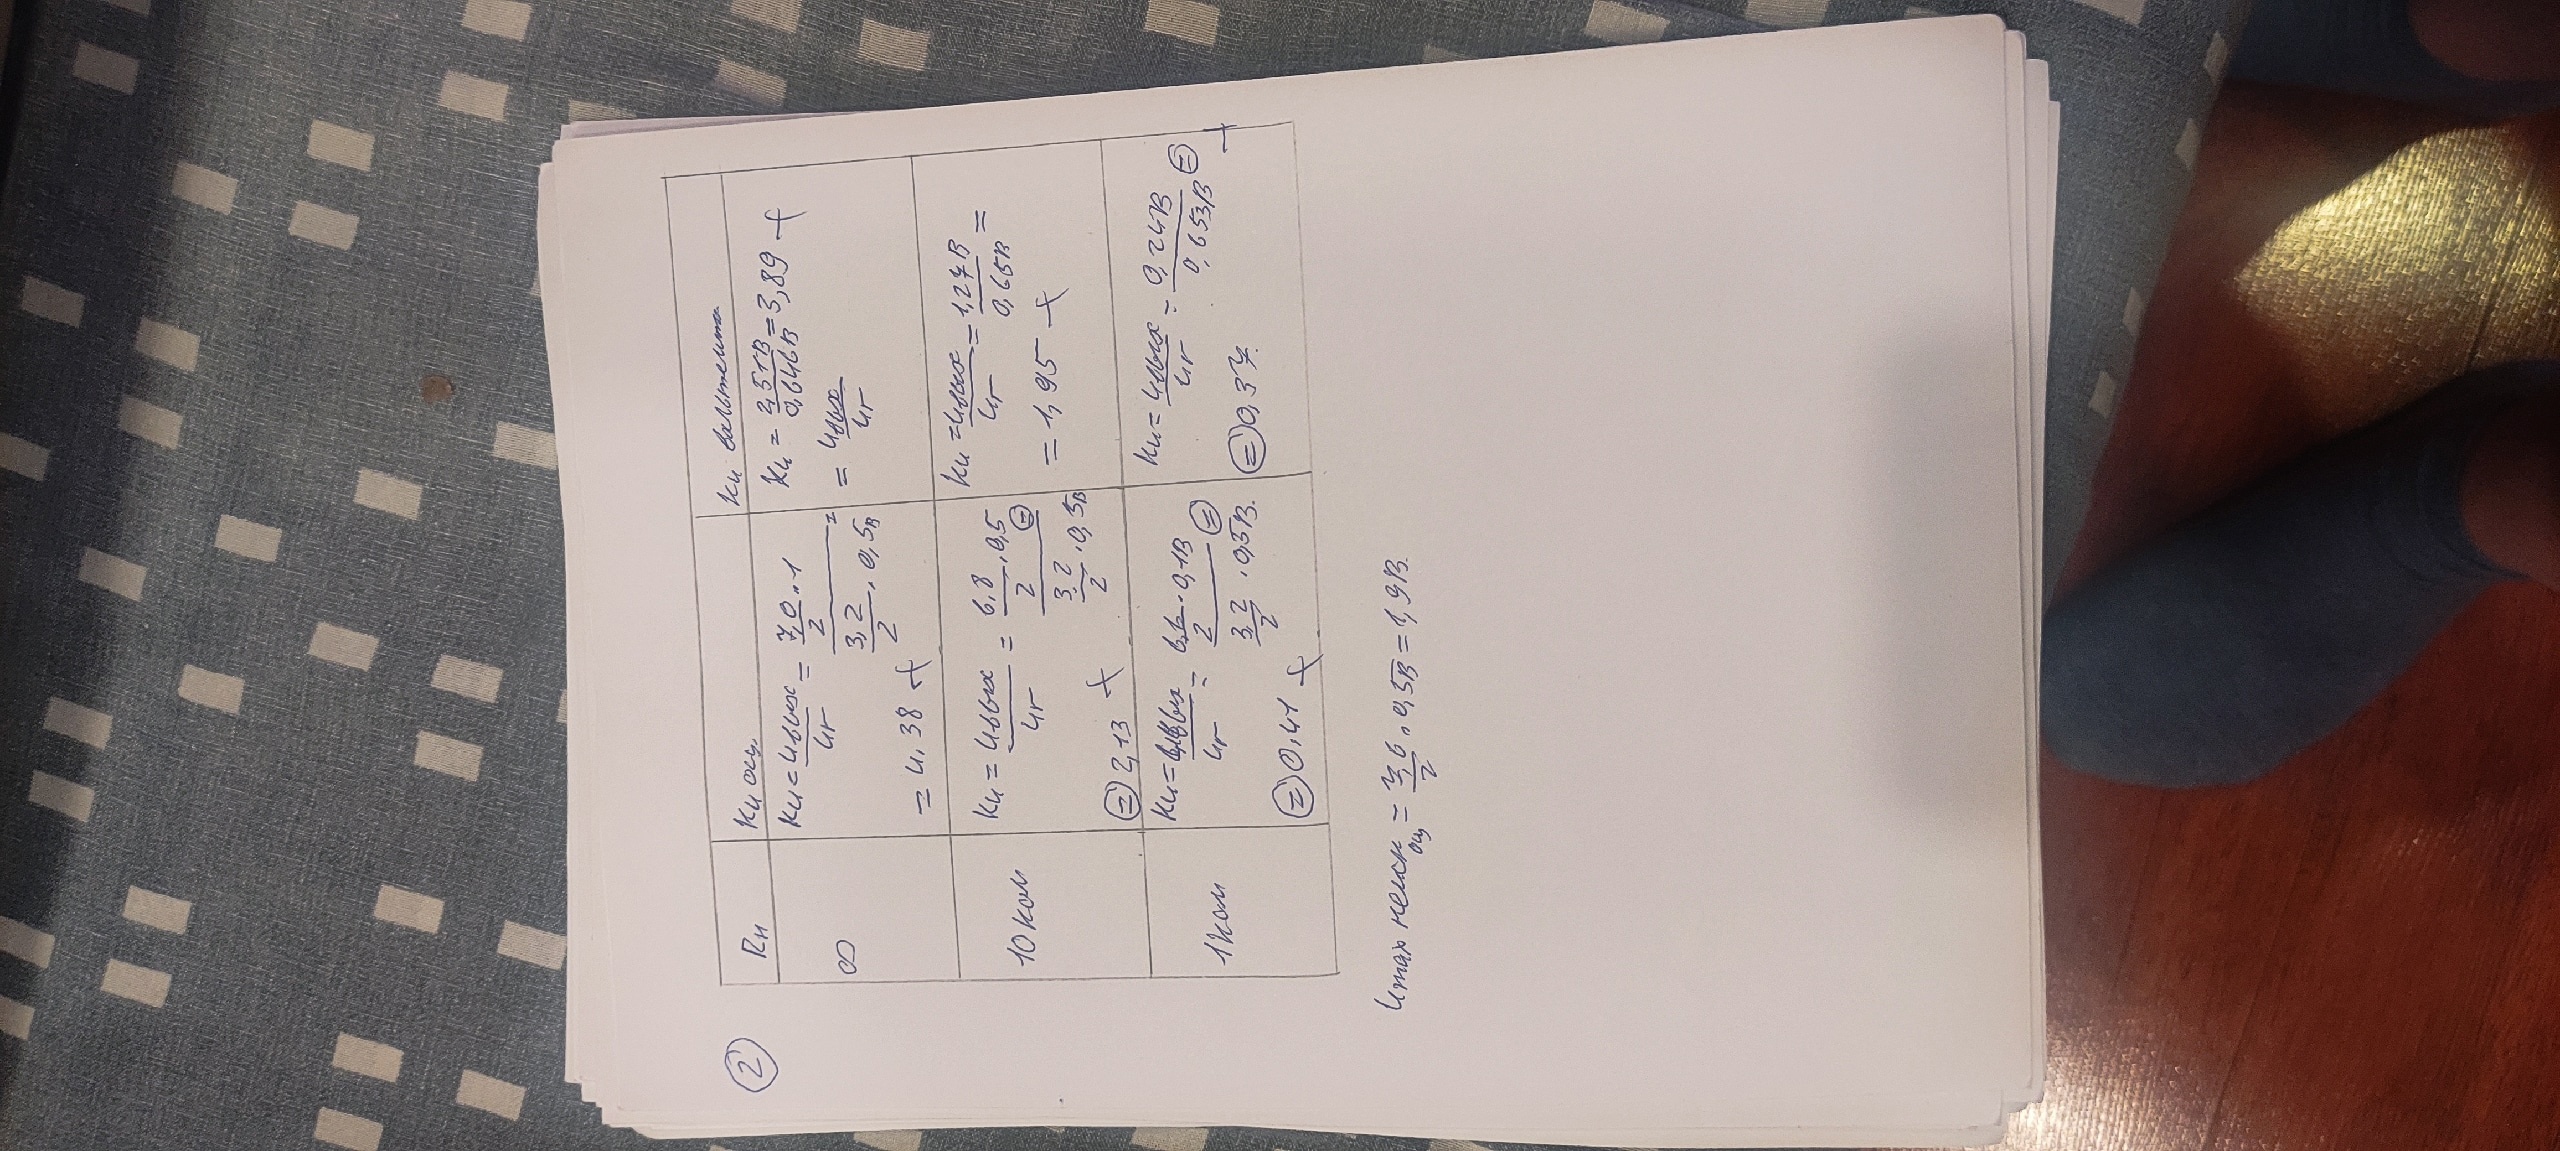 ②
Rн Ku осц. Ku вольтметра
∞
Ku = Uвых/Uг = (7,0/2 · 1)/(3,2/2 · 0,5В) =
= 4,38 +
Ku = 2,51В/0,646В = 3,89 +
= Uвых/Uг
10 кОм
Ku = Uвых/Uг = (6,8/2 · 0,5)/(3,2/2 · 0,5В) ⊜
⊜ 2,13 +
Ku = Uвых/Uг = 1,27В/0,65В =
= 1,95 +
1 кОм
Ku = Uвых/Uг = (6,6/2 · 0,1В)/(3,2/2 · 0,5В) ⊜
⊜ 0,41 +
Ku = Uвых/Uг = 0,24В/0,653В ⊜
⊜ 0,37. +
Umax неиск осц = /2 · 0,5В = 1,9В.